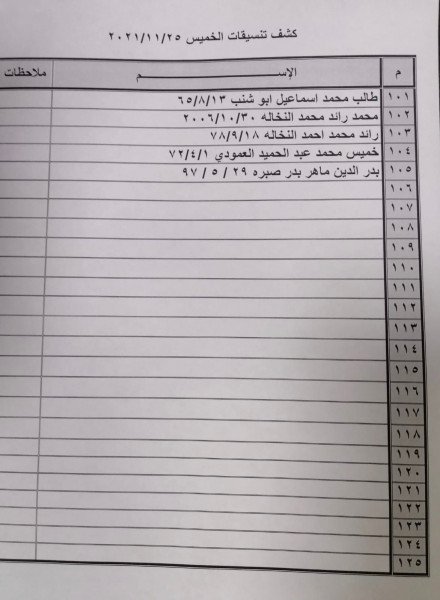 كشف تنسيقات الخميس ٢٠٢١/١١/٢٥
م الإســـــم ملاحظات
١٠١ طالب محمد اسماعيل ابو شنب ٦٥/٨/١٣
١٠٢ محمد رائد محمد النخاله ٢٠٠٦/١٠/٣٠
١٠٣ رائد محمد احمد النخاله ٧٨/٩/١٨
١٠٤ خميس محمد عبد الحميد العمودي ٧٢/٤/١
١٠٥ بدر الدين ماهر بدر صبره ٢٩ / ٥ / ٩٧
١٠٦
١٠٧
١٠٨
١٠٩
١١٠
١١١
١١٢
١١٣
١١٤
١١٥
١١٦
١١٧
١١٨
١١٩
١٢٠
١٢١
١٢٢
١٢٣
١٢٤
١٢٥